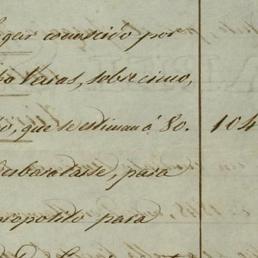 ugar conocido por
varas, sobre cimo,
o, que se estiman á 80. 104
desbaratarse, para
proposito para